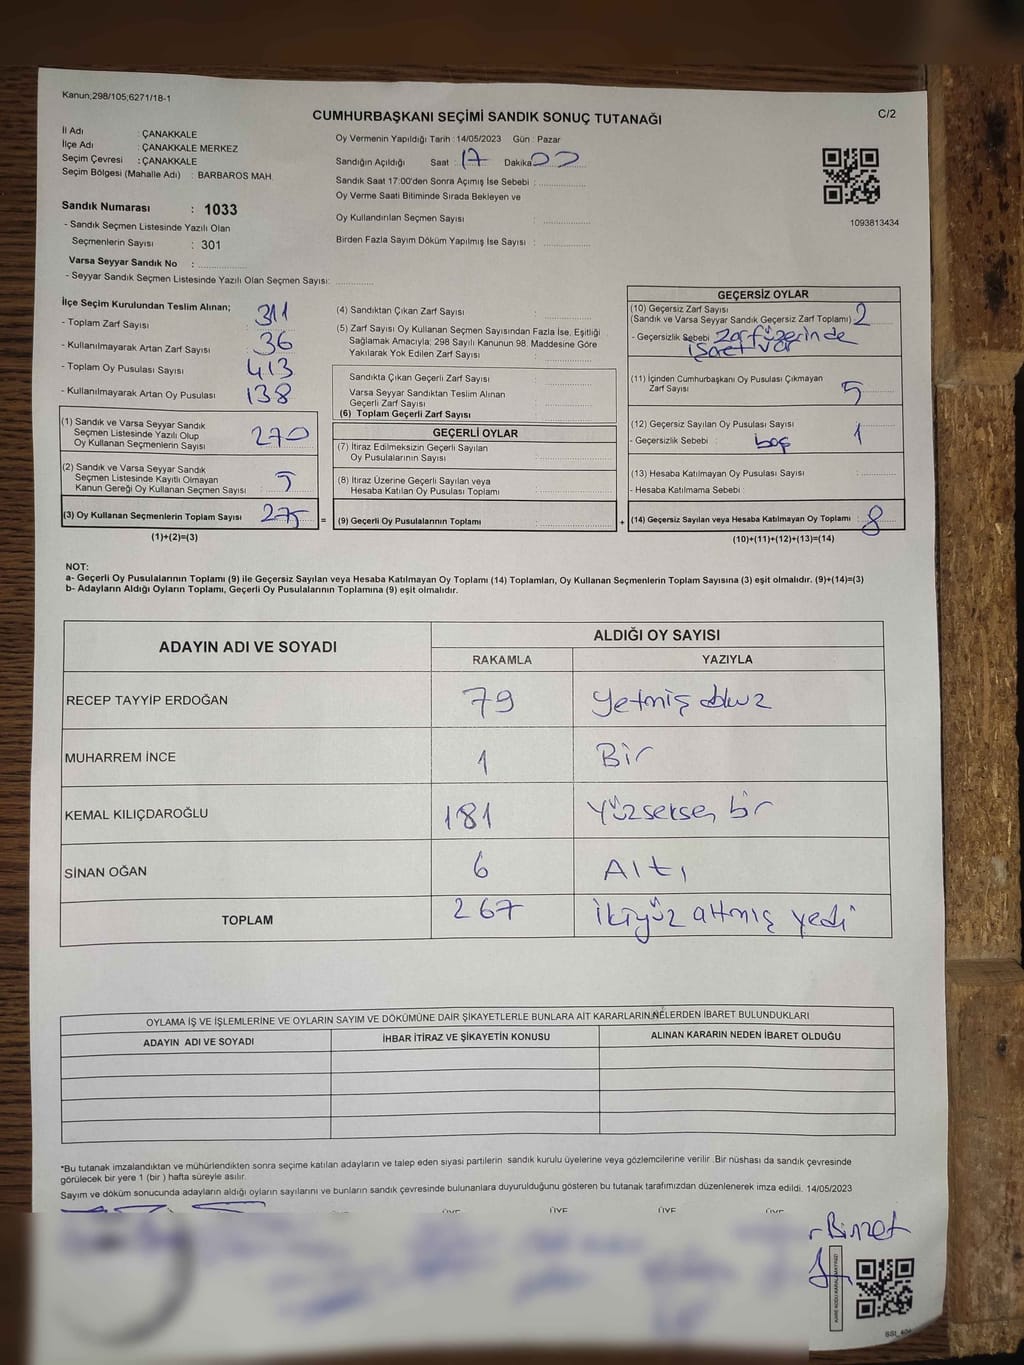 Kanun;298/105,6271/18-1
CUMHURBAŞKANI SEÇİMİ SANDIK SONUÇ TUTANAĞI
C/2
İl Adı : ÇANAKKALE
İlçe Adı : ÇANAKKALE MERKEZ
Seçim Çevresi : ÇANAKKALE
Seçim Bölgesi (Mahalle Adı) : BARBAROS MAH.
Sandık Numarası : 1033
- Sandık Seçmen Listesinde Yazılı Olan
Seçmenlerin Sayısı : 301
Varsa Seyyar Sandık No :
- Seyyar Sandık Seçmen Listesinde Yazılı Olan Seçmen Sayısı:
Oy Vermenin Yapıldığı Tarih : 14/05/2023 Gün : Pazar
Sandığın Açıldığı Saat : 17 Dakika 00
Sandık Saat 17:00'den Sonra Açımış İse Sebebi :
Oy Verme Saati Bitiminde Sırada Bekleyen ve
Oy Kullandırılan Seçmen Sayısı :
Birden Fazla Sayım Döküm Yapılmış İse Sayısı :
1093813434
İlçe Seçim Kurulundan Teslim Alınan;
- Toplam Zarf Sayısı 311
- Kullanılmayarak Artan Zarf Sayısı 36
- Toplam Oy Pusulası Sayısı 413
- Kullanılmayarak Artan Oy Pusulası 138
(1) Sandık ve Varsa Seyyar Sandık
Seçmen Listesinde Yazılı Olup
Oy Kullanan Seçmenlerin Sayısı 270
(2) Sandık ve Varsa Seyyar Sandık
Seçmen Listesinde Kayıtlı Olmayan
Kanun Gereği Oy Kullanan Seçmen Sayısı : 5
(3) Oy Kullanan Seçmenlerin Toplam Sayısı : 275 =
(1)+(2)=(3)
(4) Sandıktan Çıkan Zarf Sayısı :
(5) Zarf Sayısı Oy Kullanan Seçmen Sayısından Fazla İse, Eşitliği
Sağlamak Amacıyla; 298 Sayılı Kanunun 98. Maddesine Göre
Yakılarak Yok Edilen Zarf Sayısı :
Sandıkta Çıkan Geçerli Zarf Sayısı :
Varsa Seyyar Sandıktan Teslim Alınan
Geçerli Zarf Sayısı :
(6) Toplam Geçerli Zarf Sayısı
GEÇERLİ OYLAR
(7) İtiraz Edilmeksizin Geçerli Sayılan
Oy Pusulalarının Sayısı :
(8) İtiraz Üzerine Geçerli Sayılan veya
Hesaba Katılan Oy Pusulası Toplamı :
(9) Geçerli Oy Pusulalarının Toplamı : +
GEÇERSİZ OYLAR
(10) Geçersiz Zarf Sayısı
(Sandık ve Varsa Seyyar Sandık Geçersiz Zarf Toplamı) : 2
- Geçersizlik Sebebi : Zarf üzerinde
işaret var
(11) İçinden Cumhurbaşkanı Oy Pusulası Çıkmayan
Zarf Sayısı : 5
(12) Geçersiz Sayılan Oy Pusulası Sayısı : 1
- Geçersizlik Sebebi : boş
(13) Hesaba Katılmayan Oy Pusulası Sayısı :
- Hesaba Katılmama Sebebi :
(14) Geçersiz Sayılan veya Hesaba Katılmayan Oy Toplamı : 8
(10)+(11)+(12)+(13)=(14)
NOT:
a- Geçerli Oy Pusulalarının Toplamı (9) ile Geçersiz Sayılan veya Hesaba Katılmayan Oy Toplamı (14) Toplamları, Oy Kullanan Seçmenlerin Toplam Sayısına (3) eşit olmalıdır. (9)+(14)=(3)
b- Adayların Aldığı Oyların Toplamı, Geçerli Oy Pusulalarının Toplamına (9) eşit olmalıdır.
ADAYIN ADI VE SOYADI
ALDIĞI OY SAYISI
RAKAMLA YAZIYLA
RECEP TAYYİP ERDOĞAN 79 Yetmiş dokuz
MUHARREM İNCE 1 Bir
KEMAL KILIÇDAROĞLU 181 Yüzseksen bir
SİNAN OĞAN 6 Altı
TOPLAM 267 İkiyüz altmış yedi
OYLAMA İŞ VE İŞLEMLERİNE VE OYLARIN SAYIM VE DÖKÜMÜNE DAİR ŞİKAYETLERLE BUNLARA AİT KARARLARIN NELERDEN İBARET BULUNDUKLARI
ADAYIN ADI VE SOYADI İHBAR İTİRAZ VE ŞİKAYETİN KONUSU ALINAN KARARIN NEDEN İBARET OLDUĞU
*Bu tutanak imzalandıktan ve mühürlendikten sonra seçime katılan adayların ve talep eden siyasi partilerin sandık kurulu üyelerine veya gözlemcilerine verilir .Bir nüshası da sandık çevresinde
görülecek bir yere 1 (bir ) hafta süreyle asılır.
Sayım ve döküm sonucunda adayların aldığı oyların sayılarını ve bunların sandık çevresinde bulunanlara duyurulduğunu gösteren bu tutanak tarafımızdan düzenlenerek imza edildi. 14/05/2023
ÜYE ÜYE ÜYE ÜYE